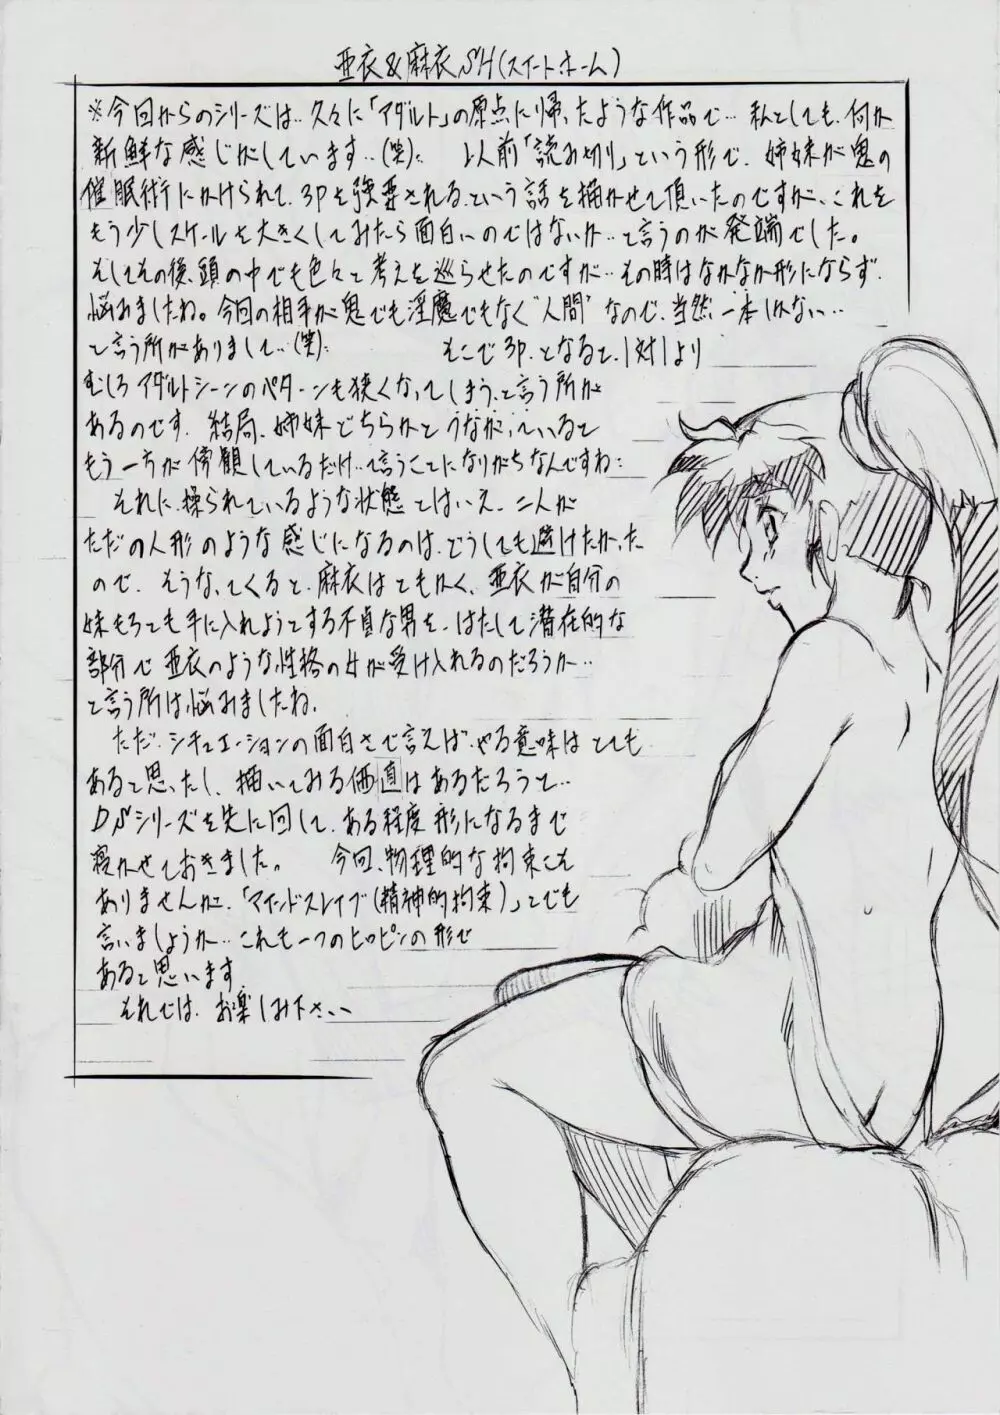 亜衣&麻衣SH(スイートホーム)
※今回からのシリーズは‥久々に「アダルト」の原点に帰ったような作品で…私としても、何か
新鮮な感じがしています‥(笑); 以前「読み切り」という形で、姉妹が鬼の
催眠術にかけられて、3Pを強要される、という話を描かせて頂いたのですが、これを
もう少しスケールを大きくしてみたら面白いのではないか‥と言うのが発端でした。
そしてその後、頭の中でも色々と考えを巡らせたのですが‥その時はなかなか形にならず、
悩みましたね。今回の相手が鬼でも淫魔でもなく"人間"なので、当然一本しかない‥
と言う所がありまして‥(笑); そこで3P、となると、1対1より
むしろアダルトシーンのパターンも狭くなってしまう、と言う所が
あるのです。結局、姉妹どちらかとつながっていると
もう一方が傍観しているだけ‥と言うことになりがちなんですね;
それに、操られているような状態とはいえ、二人が
ただの人形のような感じになるのは、どうしても避けたかった
ので、そうなってくると、麻衣はともかく、亜衣が自分の
妹もろとも手に入れようとする不貞な男を、はたして潜在的な
部分で亜衣のような性格の女が受け入れるのだろうか‥
と言う所は悩みましたね。
ただ、シチュエーションの面白さで言えば、やる意味はとても
あると思ったし、描いてみる価値はあるだろうと‥
DSシリーズを先に回して、ある程度形になるまで
寝かせておきました。 今回、物理的な拘束こそ
ありませんが、「マインドスレイブ(精神的拘束)」とでも
言いましょうか‥これも一つのヒロピンの形で
あると思います
それでは、お楽しみ下さい